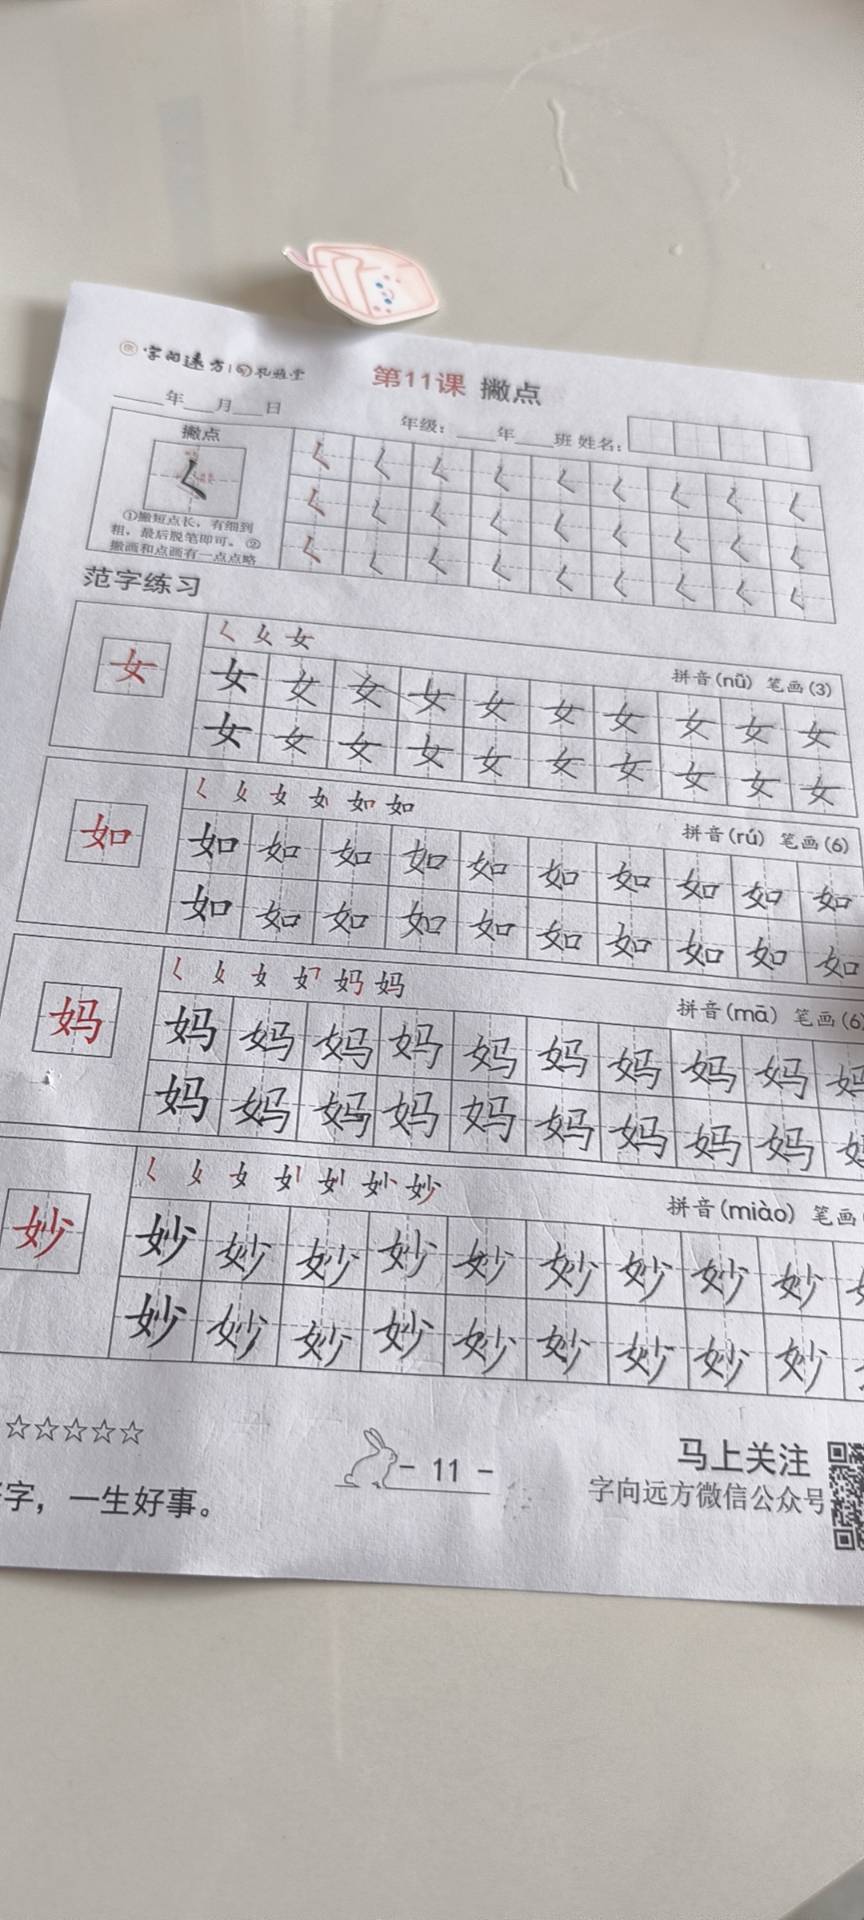 字向远方
第11课 撇点
年 月 日
年级： 年 班 姓名：
撇点
①撇短点长，有细到
粗，最后脱笔即可。②
撇画和点画有一点点略
范字练习
女
拼音(nǚ) 笔画(3)
女 女 女 女 女 女 女 女 女 女
女 女 女 女 女 女 女 女 女 女
如
拼音(rú) 笔画(6)
如 如 如 如 如 如 如 如 如 如
如 如 如 如 如 如 如 如 如 如
妈
拼音(mā) 笔画(6)
妈 妈 妈 妈 妈 妈 妈 妈 妈 妈
妈 妈 妈 妈 妈 妈 妈 妈 妈
妙
拼音(miào) 笔画
妙 妙 妙 妙 妙 妙 妙 妙 妙
妙 妙 妙 妙 妙 妙 妙 妙 妙
☆☆☆☆☆
字，一生好事。
- 11 -
马上关注
字向远方微信公众号